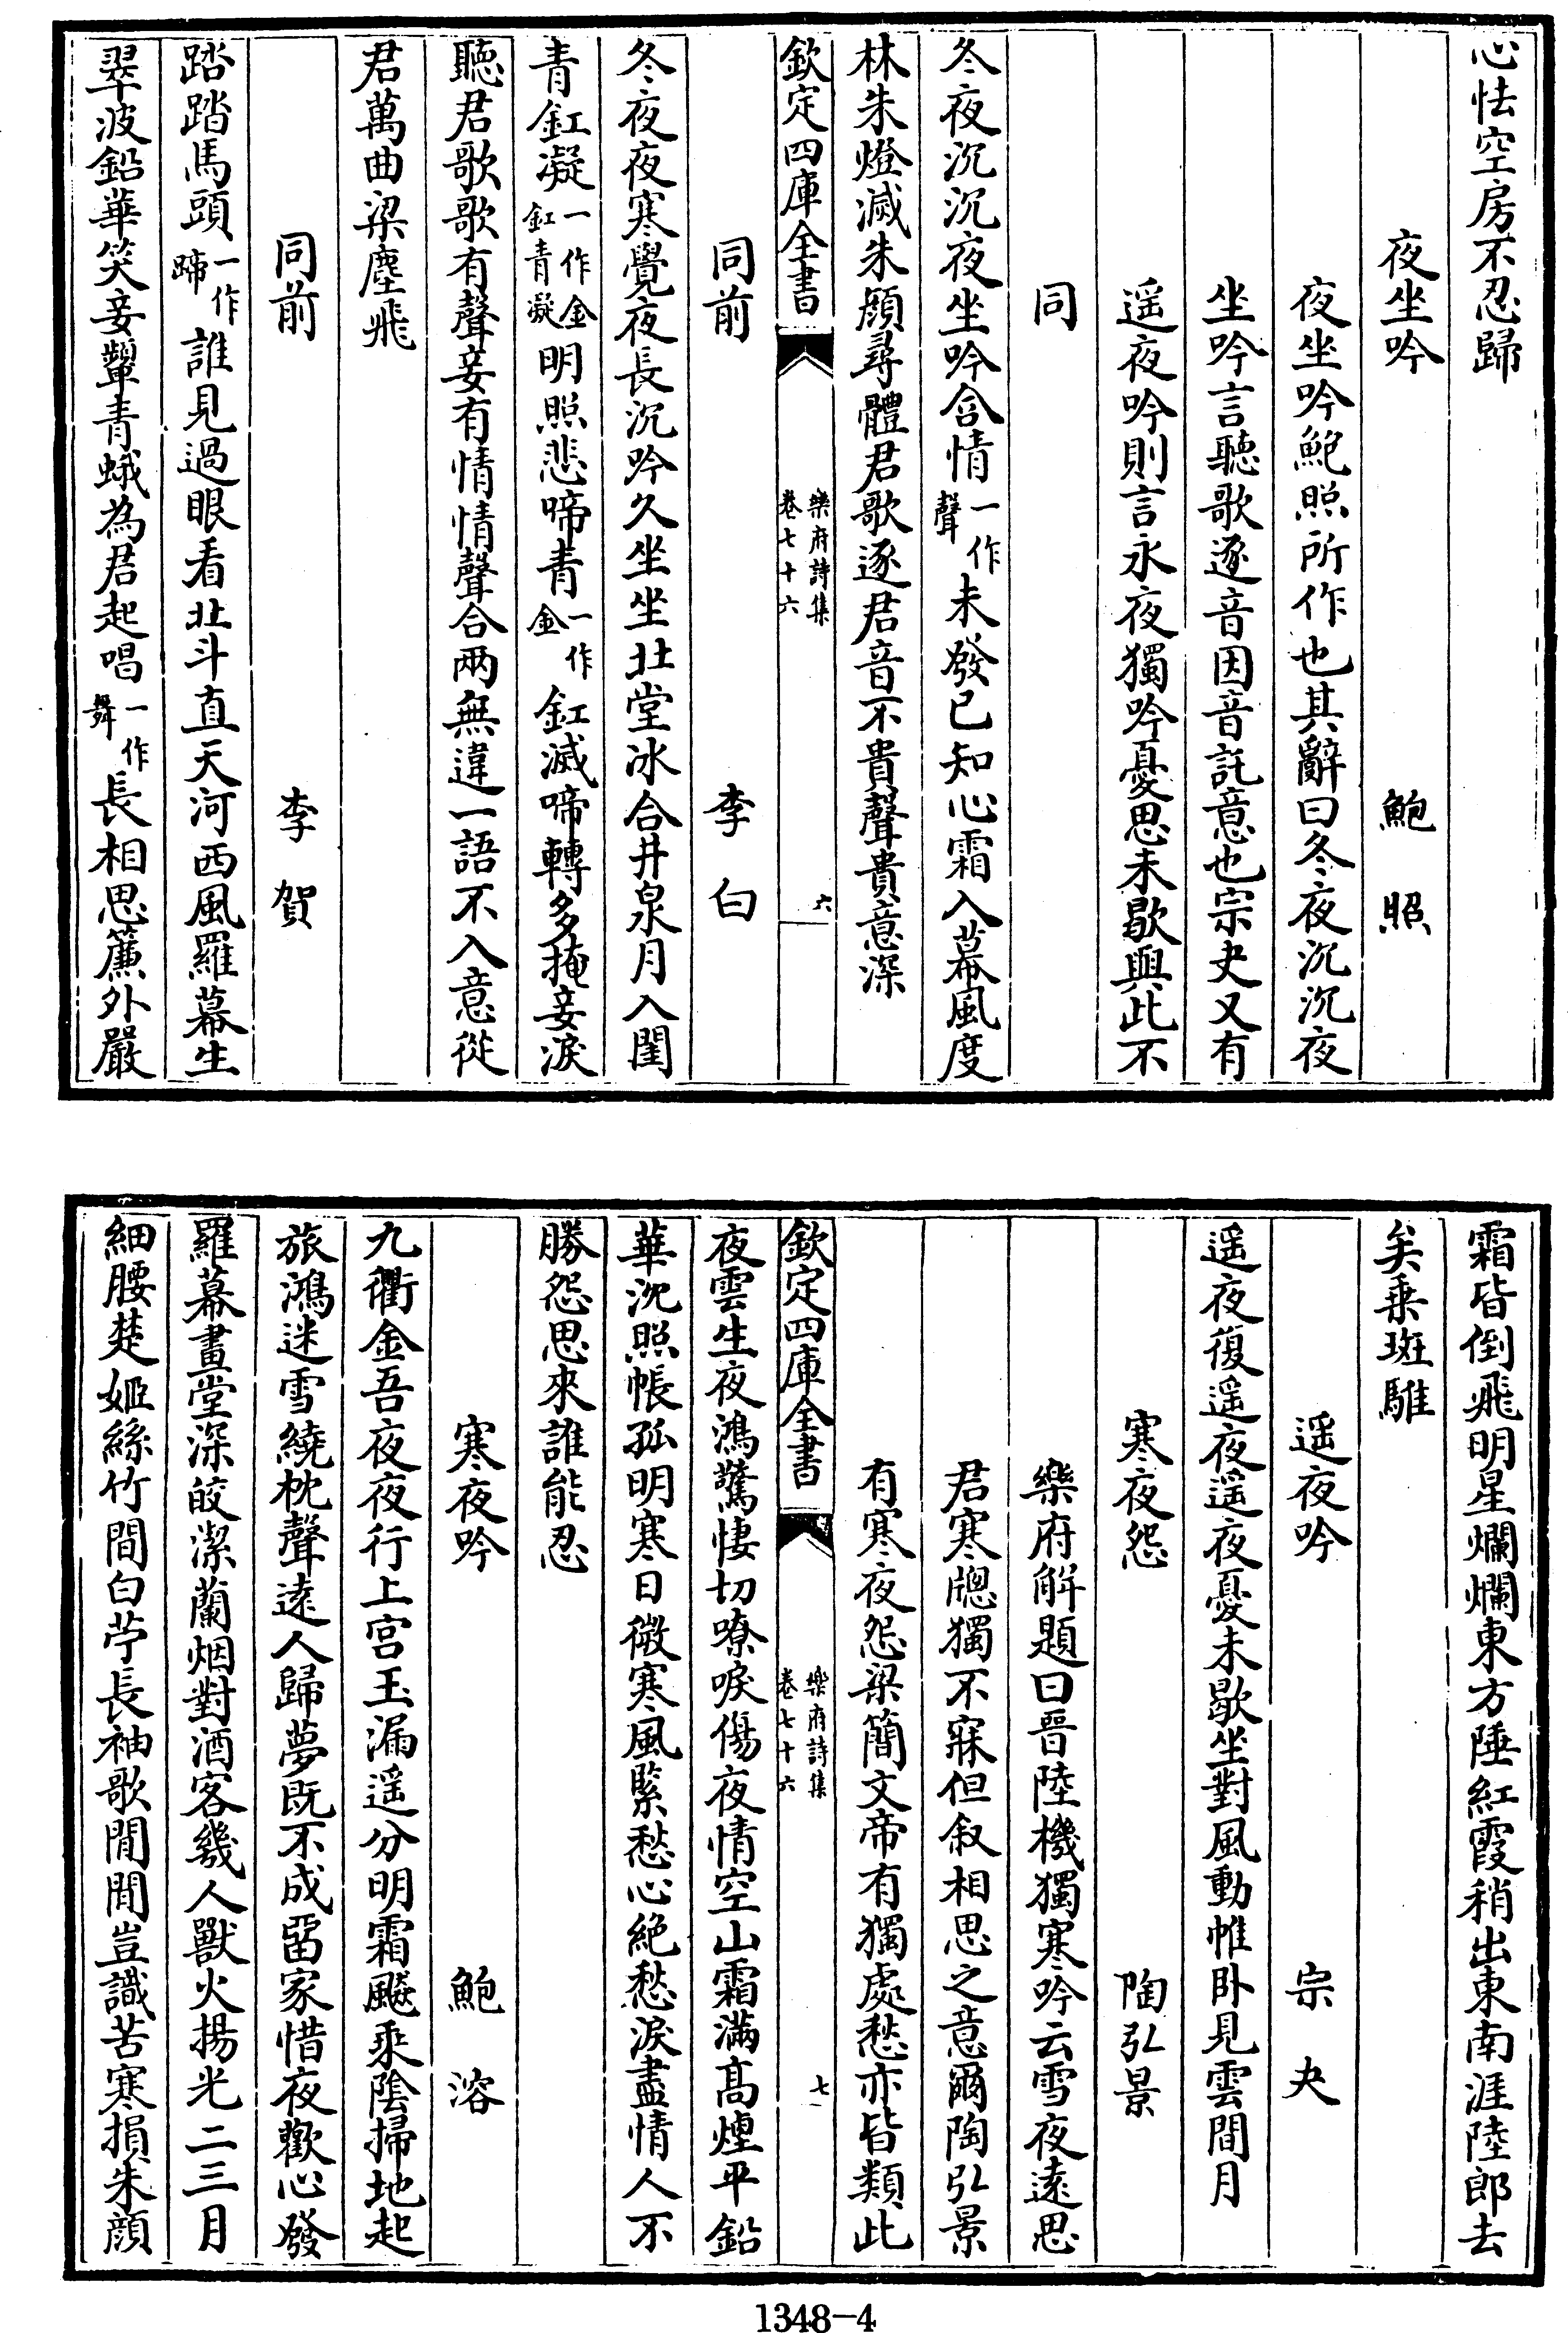 心怯空房不忍歸
夜坐吟　鮑照
夜坐吟鮑照所作也其辭曰冬夜沉沉夜
坐吟言聽歌逐音因音託意也宗史又有
遥夜吟則言永夜獨吟憂思未歇與此不
同
冬夜沉沉夜坐吟含情一作聲未發已知心霜入幕風度
林朱燈滅朱顔尋體君歌逐君音不貴聲貴意深
欽定四庫全書　樂府詩集卷七十六　六
同前　李白
冬夜夜寒覺夜長沉吟久坐坐北堂冰合井泉月入閨
青釭凝一作金釭青凝明照悲啼青一作金釭滅啼轉多掩妾淚
聽君歌歌有聲妾有情情聲合兩無違一語不入意從
君萬曲梁塵飛
同前　李賀
踏踏馬頭一作蹄誰見過眼看北斗直天河西風羅幕生
翠波鉛華笑妾顰青蛾為君起唱一作舞長相思簾外嚴
霜皆倒飛明星爛爛東方陲紅霞稍出東南涯陸郎去
矣乗斑騅
遥夜吟　宗夬
遥夜復遥夜遥夜憂未歇坐對風動帷卧見雲間月
寒夜怨　陶弘景
樂府解題曰晉陸機獨寒吟云雪夜遠思
君寒牕獨不寐但叙相思之意爾陶弘景
有寒夜怨梁簡文帝有獨處愁亦皆類此
欽定四庫全書　樂府詩集卷七十六　七
夜雲生夜鴻驚悽切嘹唳傷夜情空山霜滿髙煙平鉛
華沈照帳孤明寒日微寒風緊愁心絶愁淚盡情人不
勝怨思來誰能忍
寒夜吟　鮑溶
九衢金吾夜夜行上宫玉漏遥分明霜飈乘陰掃地起
旅鴻迷雪繞枕聲逺人歸夢既不成留家惜夜歡心發
羅幕畫堂深皎潔蘭烟對酒客幾人獸火揚光二三月
細腰楚姬絲竹間白苧長袖歌閒閒豈識苦寒損朱顔
1348-4